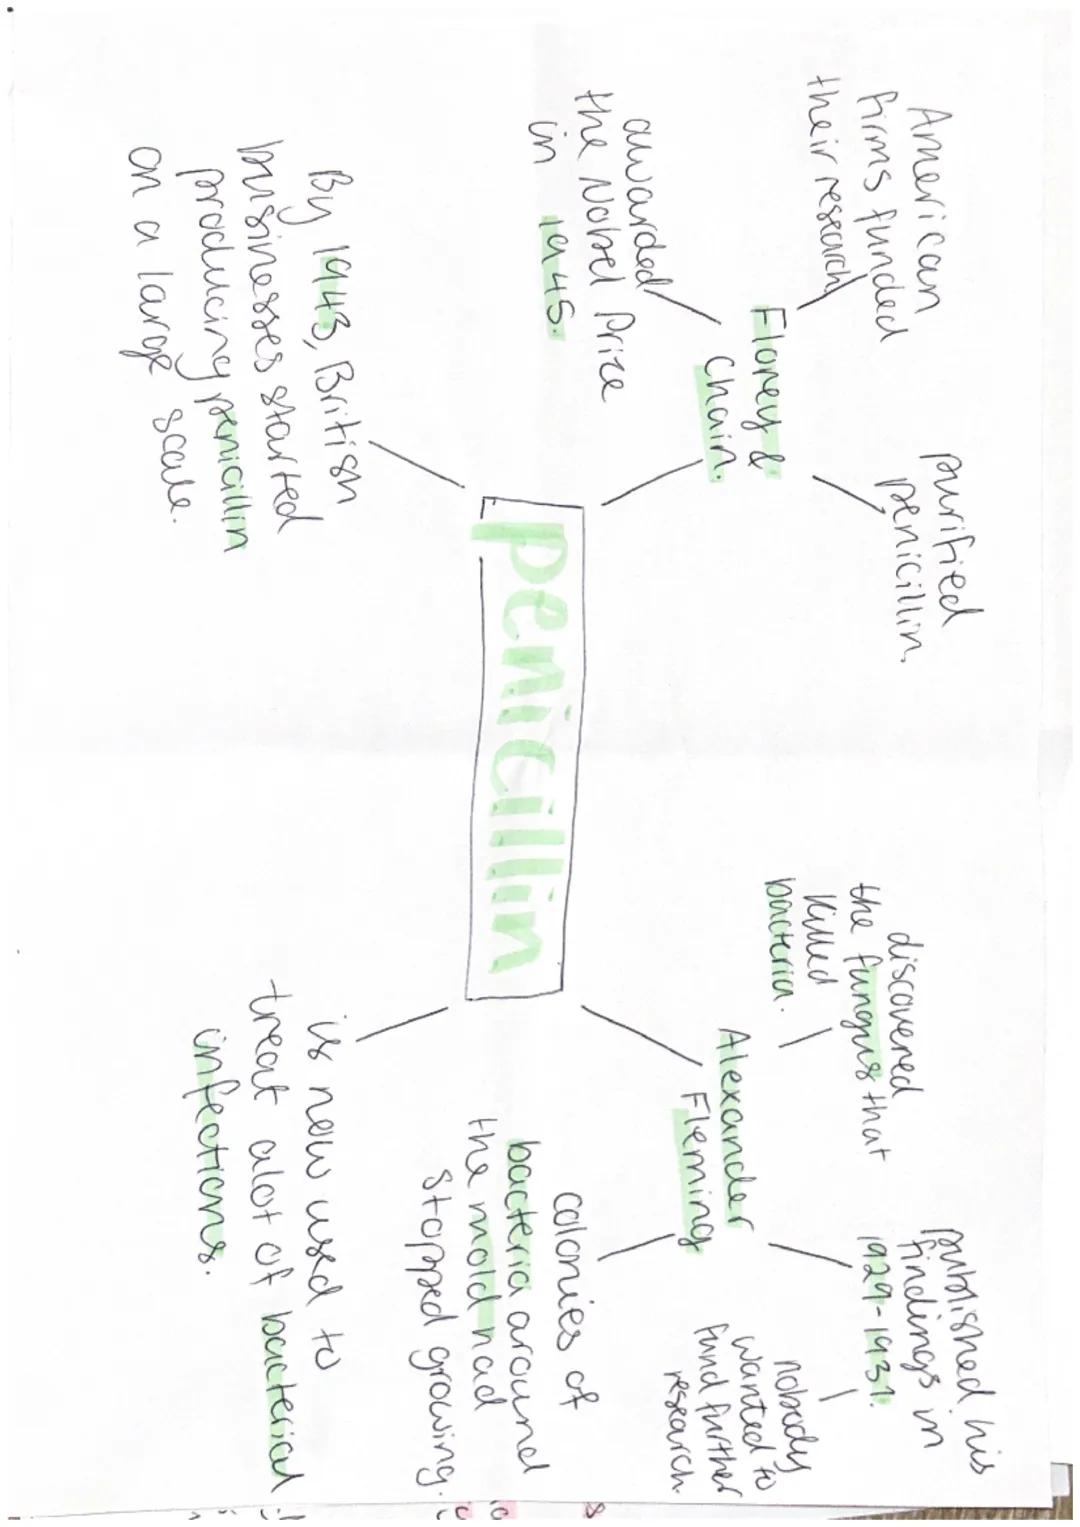 American
firms funded
their research
purified
penicillin.
Florey &
Chain.
awarded
the Nobel Prize
in 1945.
By 1943, British
bussinesses started
producing penicillin
on a large scale.
penicillin
discovered
the fungus that
killed
bacteria.
Alexander
Fleming
published his
findings in
1929-1931.
nobody
wanted to
fund further
research.
colonies of
bacteria around
the mold had
stopped growing.
is now used to
treat alot of bacterial
infections.